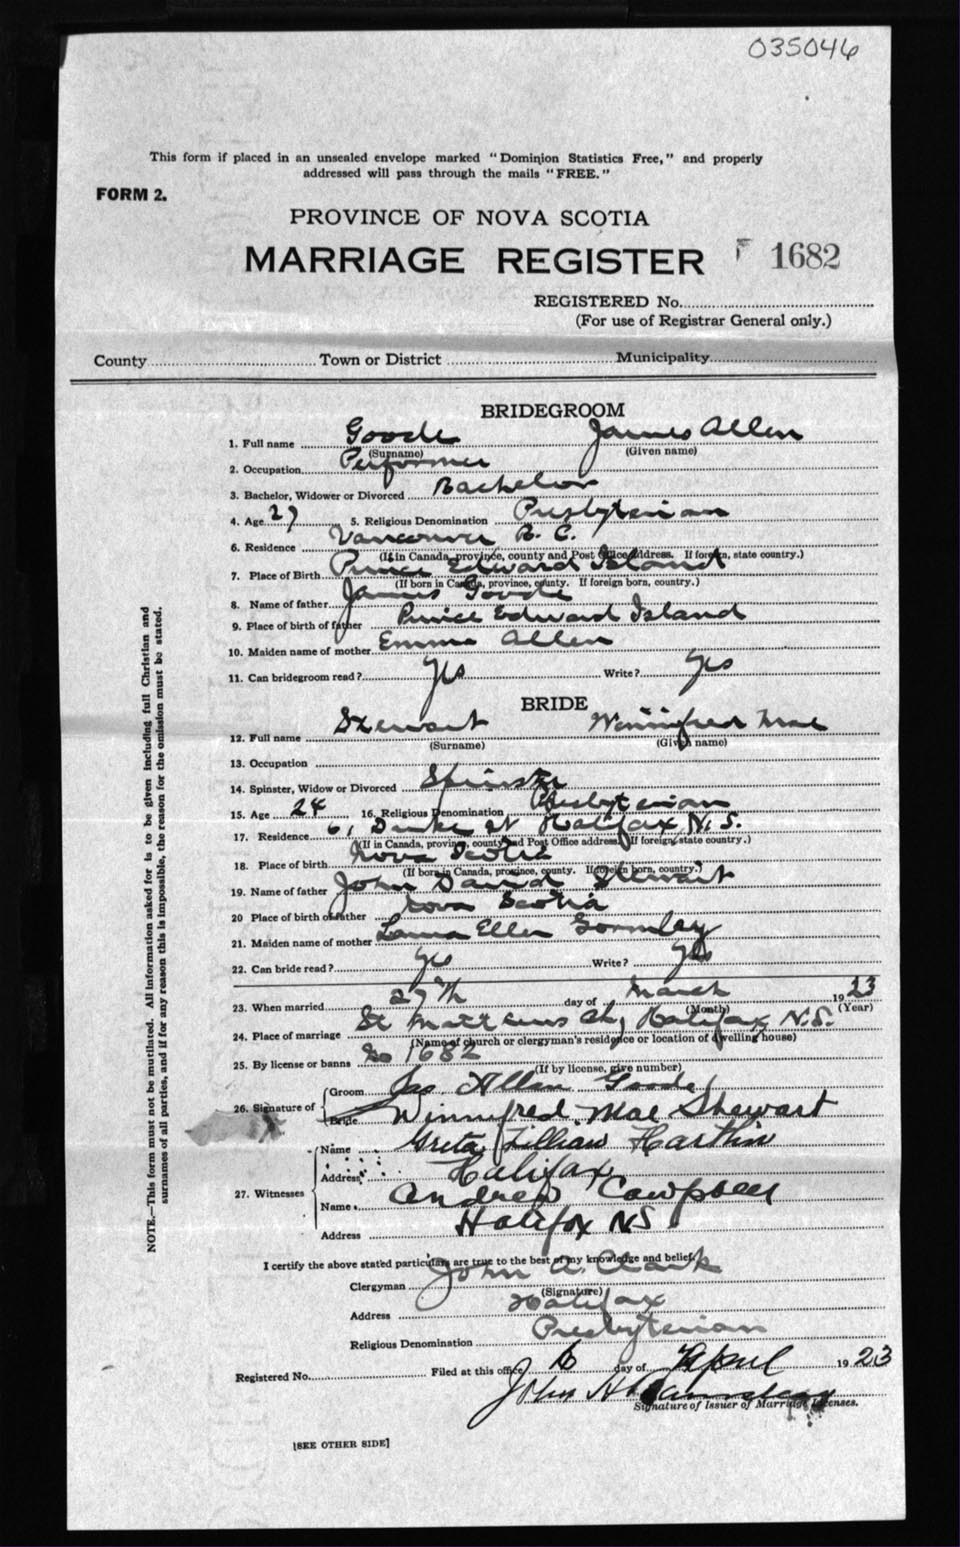 035046
This form if placed in an unsealed envelope marked "Dominion Statistics Free," and properly
addressed will pass through the mails "FREE."
FORM 2.
PROVINCE OF NOVA SCOTIA
MARRIAGE REGISTER 1682
REGISTERED No.
(For use of Registrar General only.)
County Town or District Municipality
BRIDEGROOM
1. Full name Goode James Allen
(Surname) (Given name)
2. Occupation Performer
3. Bachelor, Widower or Divorced Bachelor
4. Age 27 5. Religious Denomination Presbyterian
6. Residence Vancouver B. C.
(If in Canada, province, county and Post Office address. If foreign, state country.)
7. Place of Birth Prince Edward Island
(If born in Canada, province, county. If foreign born, country.)
8. Name of father James Goode
9. Place of birth of father Prince Edward Island
10. Maiden name of mother Emma Allen
11. Can bridegroom read? Yes Write? Yes
BRIDE
12. Full name Stewart Winnifred Mae
(Surname) (Given name)
13. Occupation
14. Spinster, Widow or Divorced Spinster
15. Age 24 16. Religious Denomination Presbyterian
17. Residence 61 Duke St Halifax, N.S.
(If in Canada, province, county and Post Office address. If foreign, state country.)
18. Place of birth Nova Scotia
(If born in Canada, province, county. If foreign born, country.)
19. Name of father John David Stewart
20 Place of birth of father Nova Scotia
21. Maiden name of mother Ellen Gormley
22. Can bride read? Yes Write? Yes
23. When married 27th day of March 1923
(Month) (Year)
24. Place of marriage St Matthews Ch, Halifax, N.S.
(Name of church or clergyman's residence or location of dwelling house)
25. By license or banns No 1682
(If by license, give number)
26. Signature of Groom Jas. Allan Goode
Bride Winnifred Mae Stewart
27. Witnesses Name Greta Lillian Hartlin
Address Halifax
Name Andrew Campbell
Address Halifax NS
I certify the above stated particulars are true to the best of my knowledge and belief.
Clergyman John A. Clark
(Signature)
Address Halifax
Religious Denomination Presbyterian
Registered No. Filed at this office 6 day of April 1923
John H
Signature of Issuer of Marriage Licenses.
[SEE OTHER SIDE]
NOTE.—This form must not be mutilated. All information asked for is to be given including full Christian and
surnames of all parties, and if for any reason this is impossible, the reason for the omission must be stated.